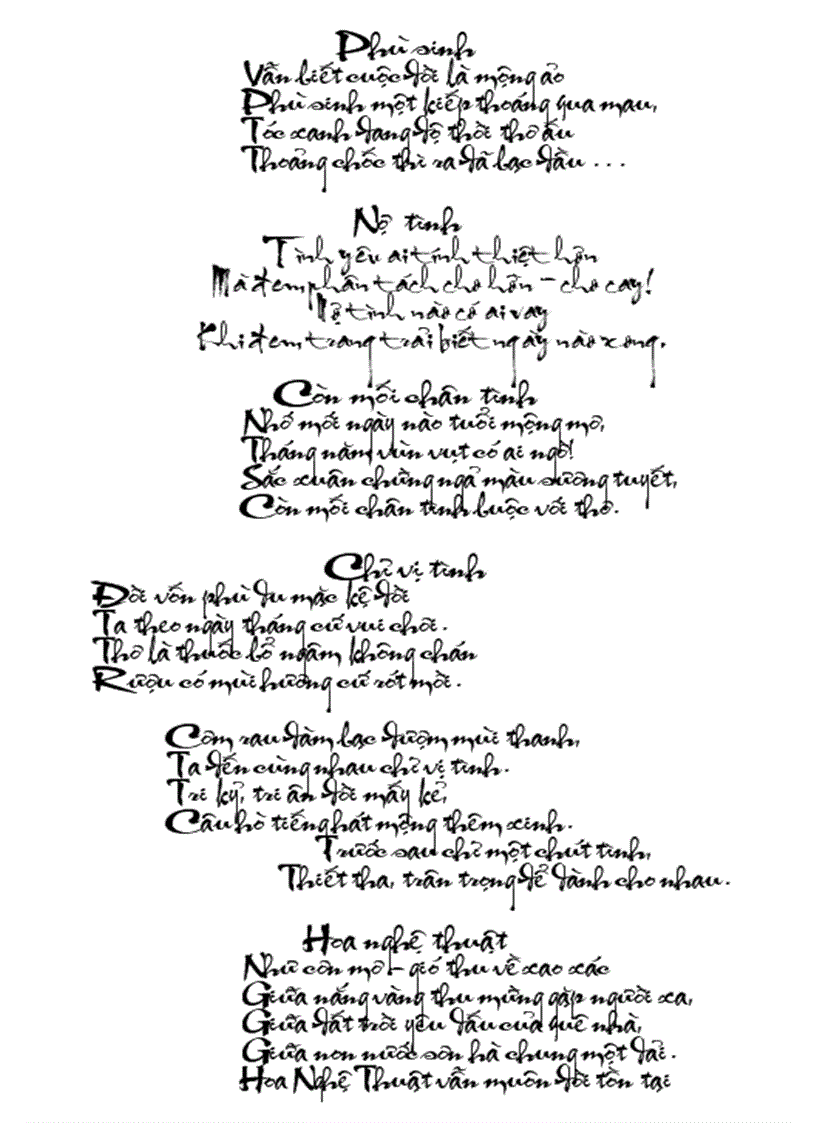 Phù sinh
Vẫn biết cuộc đời là mộng ảo
Phù sinh một kiếp thoáng qua mau,
Tóc xanh đang độ thời thơ ấu
Thoảng chốc thì ra đã bạc đầu ...
Nợ tình
Tình yêu ai tính thiệt hơn
Mà đem phân tách cho hờn - cho cay!
Nợ tình nào có ai vay
Khi đem trang trải biết ngày nào xong.
Còn mối chân tình
Nhớ mới ngày nào tuổi mộng mơ,
Tháng năm vùn vụt có ai ngờ!
Sắc xuân chừng ngả màu sương tuyết,
Còn mối chân tình buộc với thơ.
Chỉ vị tình
Đời vốn phù du mặc kệ đời
Ta theo ngày tháng cứ vui chơi.
Thơ là thuốc bổ ngâm không chán
Rượu có mùi hương cứ rót mời.
Cơm rau đàm bạc đượm mùi thanh,
Ta đến cùng nhau chỉ vị tình.
Tri kỷ, tri ân đời mấy kẻ,
Câu hò tiếng hát mộng thêm xinh.
Trước sau chỉ một chút tình,
Thiết tha, trân trọng để dành cho nhau.
Hoa nghệ thuật
Như cơn mơ - gió thu về xao xác
Giữa nắng vàng thu mừng gặp người xa,
Giữa đất trời yêu dấu của quê nhà,
Giữa non nước sơn hà chung một dải.
Hoa Nghệ Thuật vẫn muôn đời tồn tại